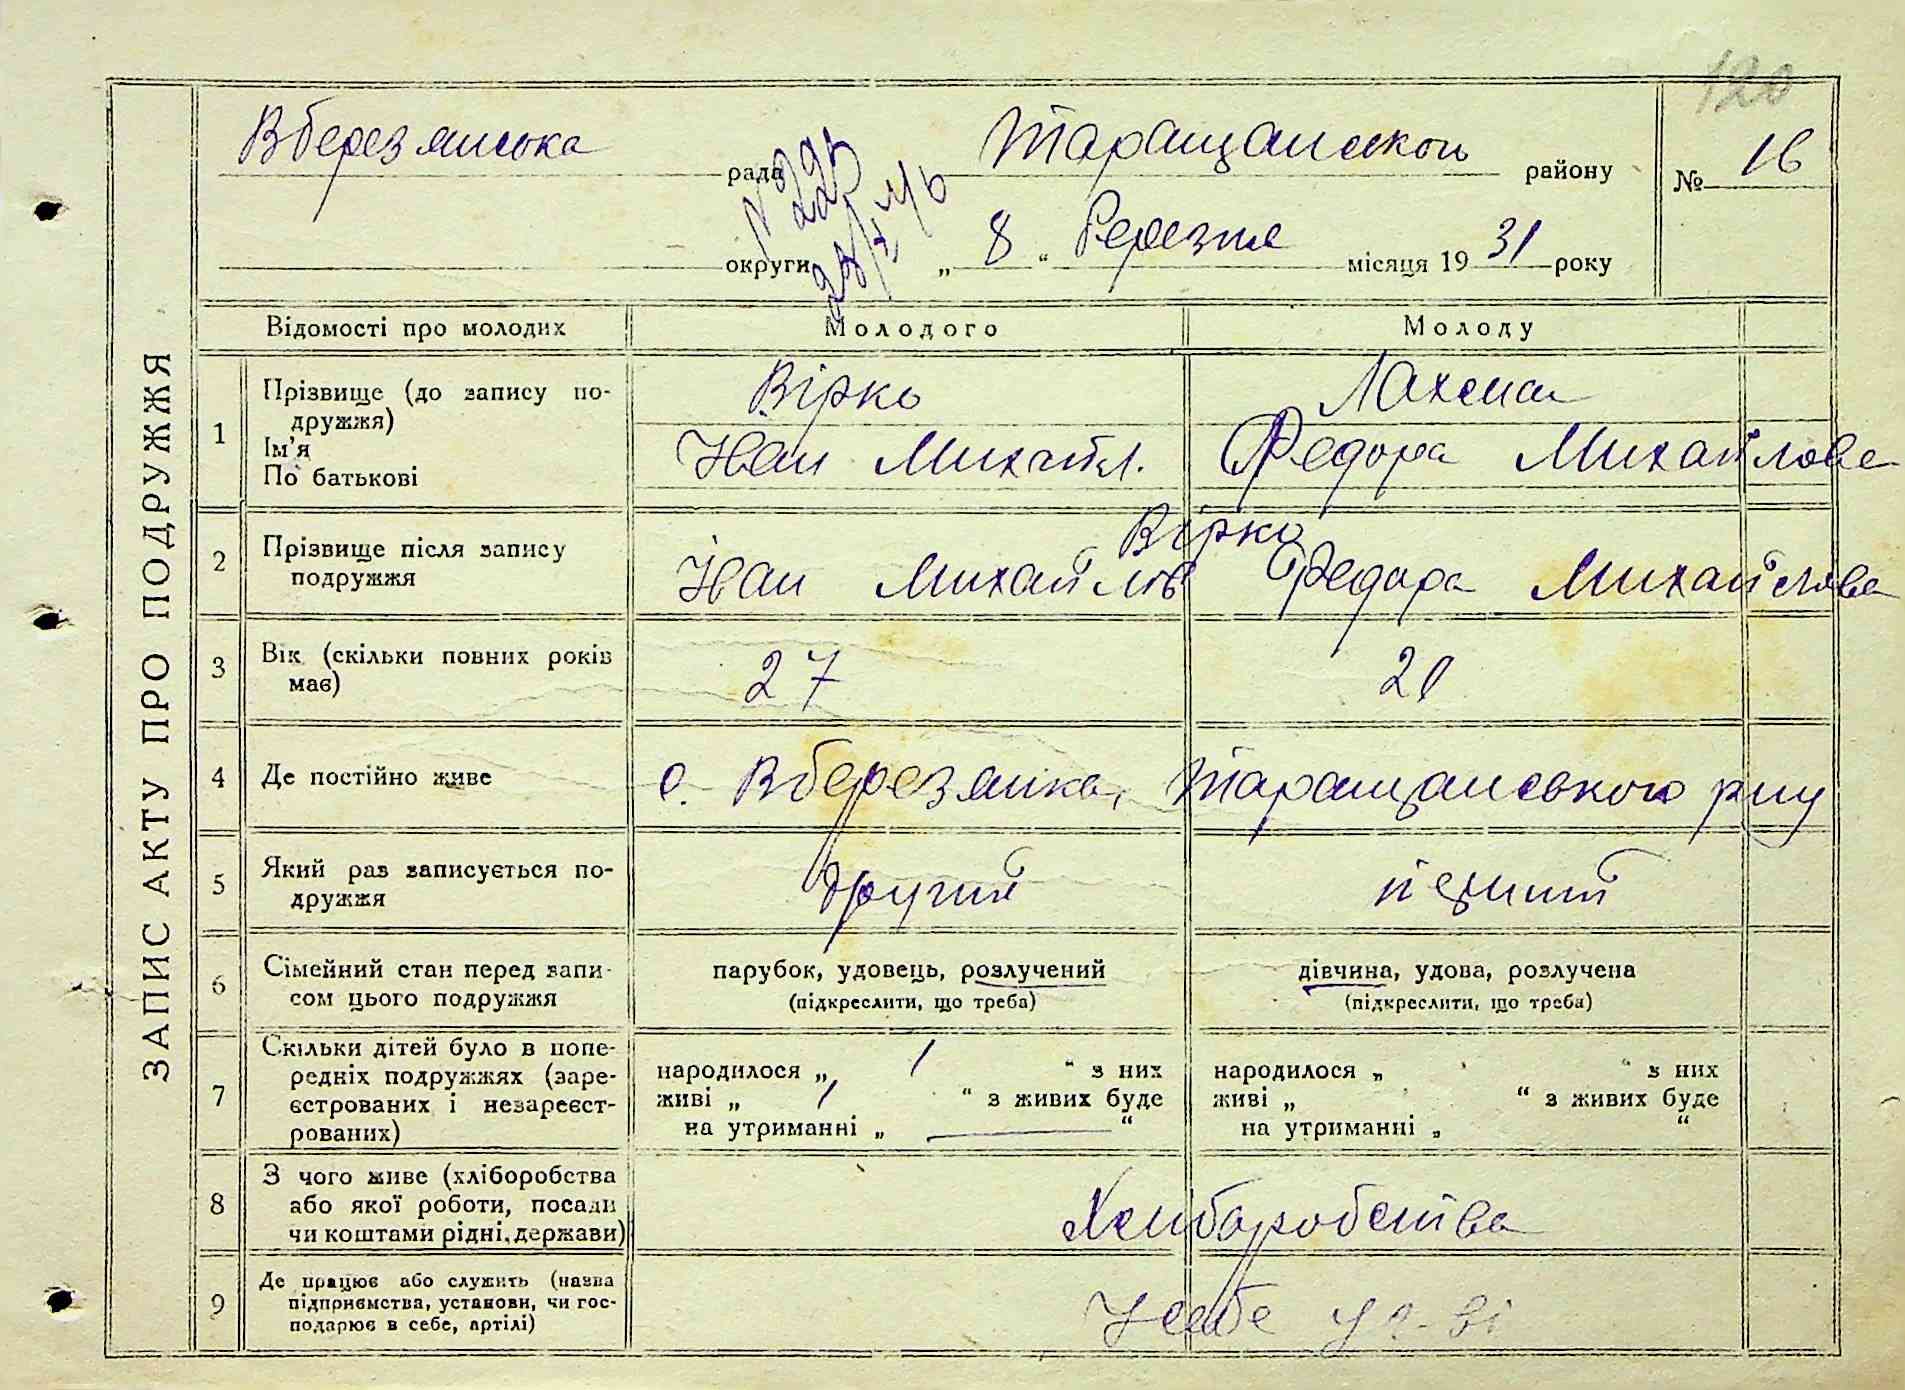 120
ЗАПИС АКТУ ПРО ПОДРУЖЖЯ
Вберезянська рада Таращанськой району № 16
округи „ 8 “ Березня місяця 19 31 року
Відомості про молодих Молодого Молоду
1 Прізвище (до запису по-
дружжя)
Ім'я
По батькові
Вірко
Іван Михайл.
Федора Михайлова
2 Прізвище після запису
подружжя
Вірко
Іван Михайлів Федора Михайлова
3 Вік (скільки повних років
має)
27 20
4 Де постійно живе с. Вберезянка, Таращанського рну
5 Який раз записується по-
дружжя
другий перший
6 Сімейний стан перед запи-
сом цього подружжя
парубок, удовець, розлучений
(підкреслити, що треба)
дівчина, удова, розлучена
(підкреслити, що треба)
7 Скільки дітей було в попе-
редніх подружжях (заре-
єстрованих і незареєст-
рованих)
народилося „ 1 “ з них
живі „ 1 “ з живих буде
на утриманні „ — “
народилося „ “ з них
живі „ “ з живих буде
на утриманні „ “
8 З чого живе (хліборобства
або якої роботи, посади
чи коштами рідні, держави)
Хліборобства
9 Де працює або служить (назва
підприємства, установи, чи гос-
подарює в себе, артілі)
У себе